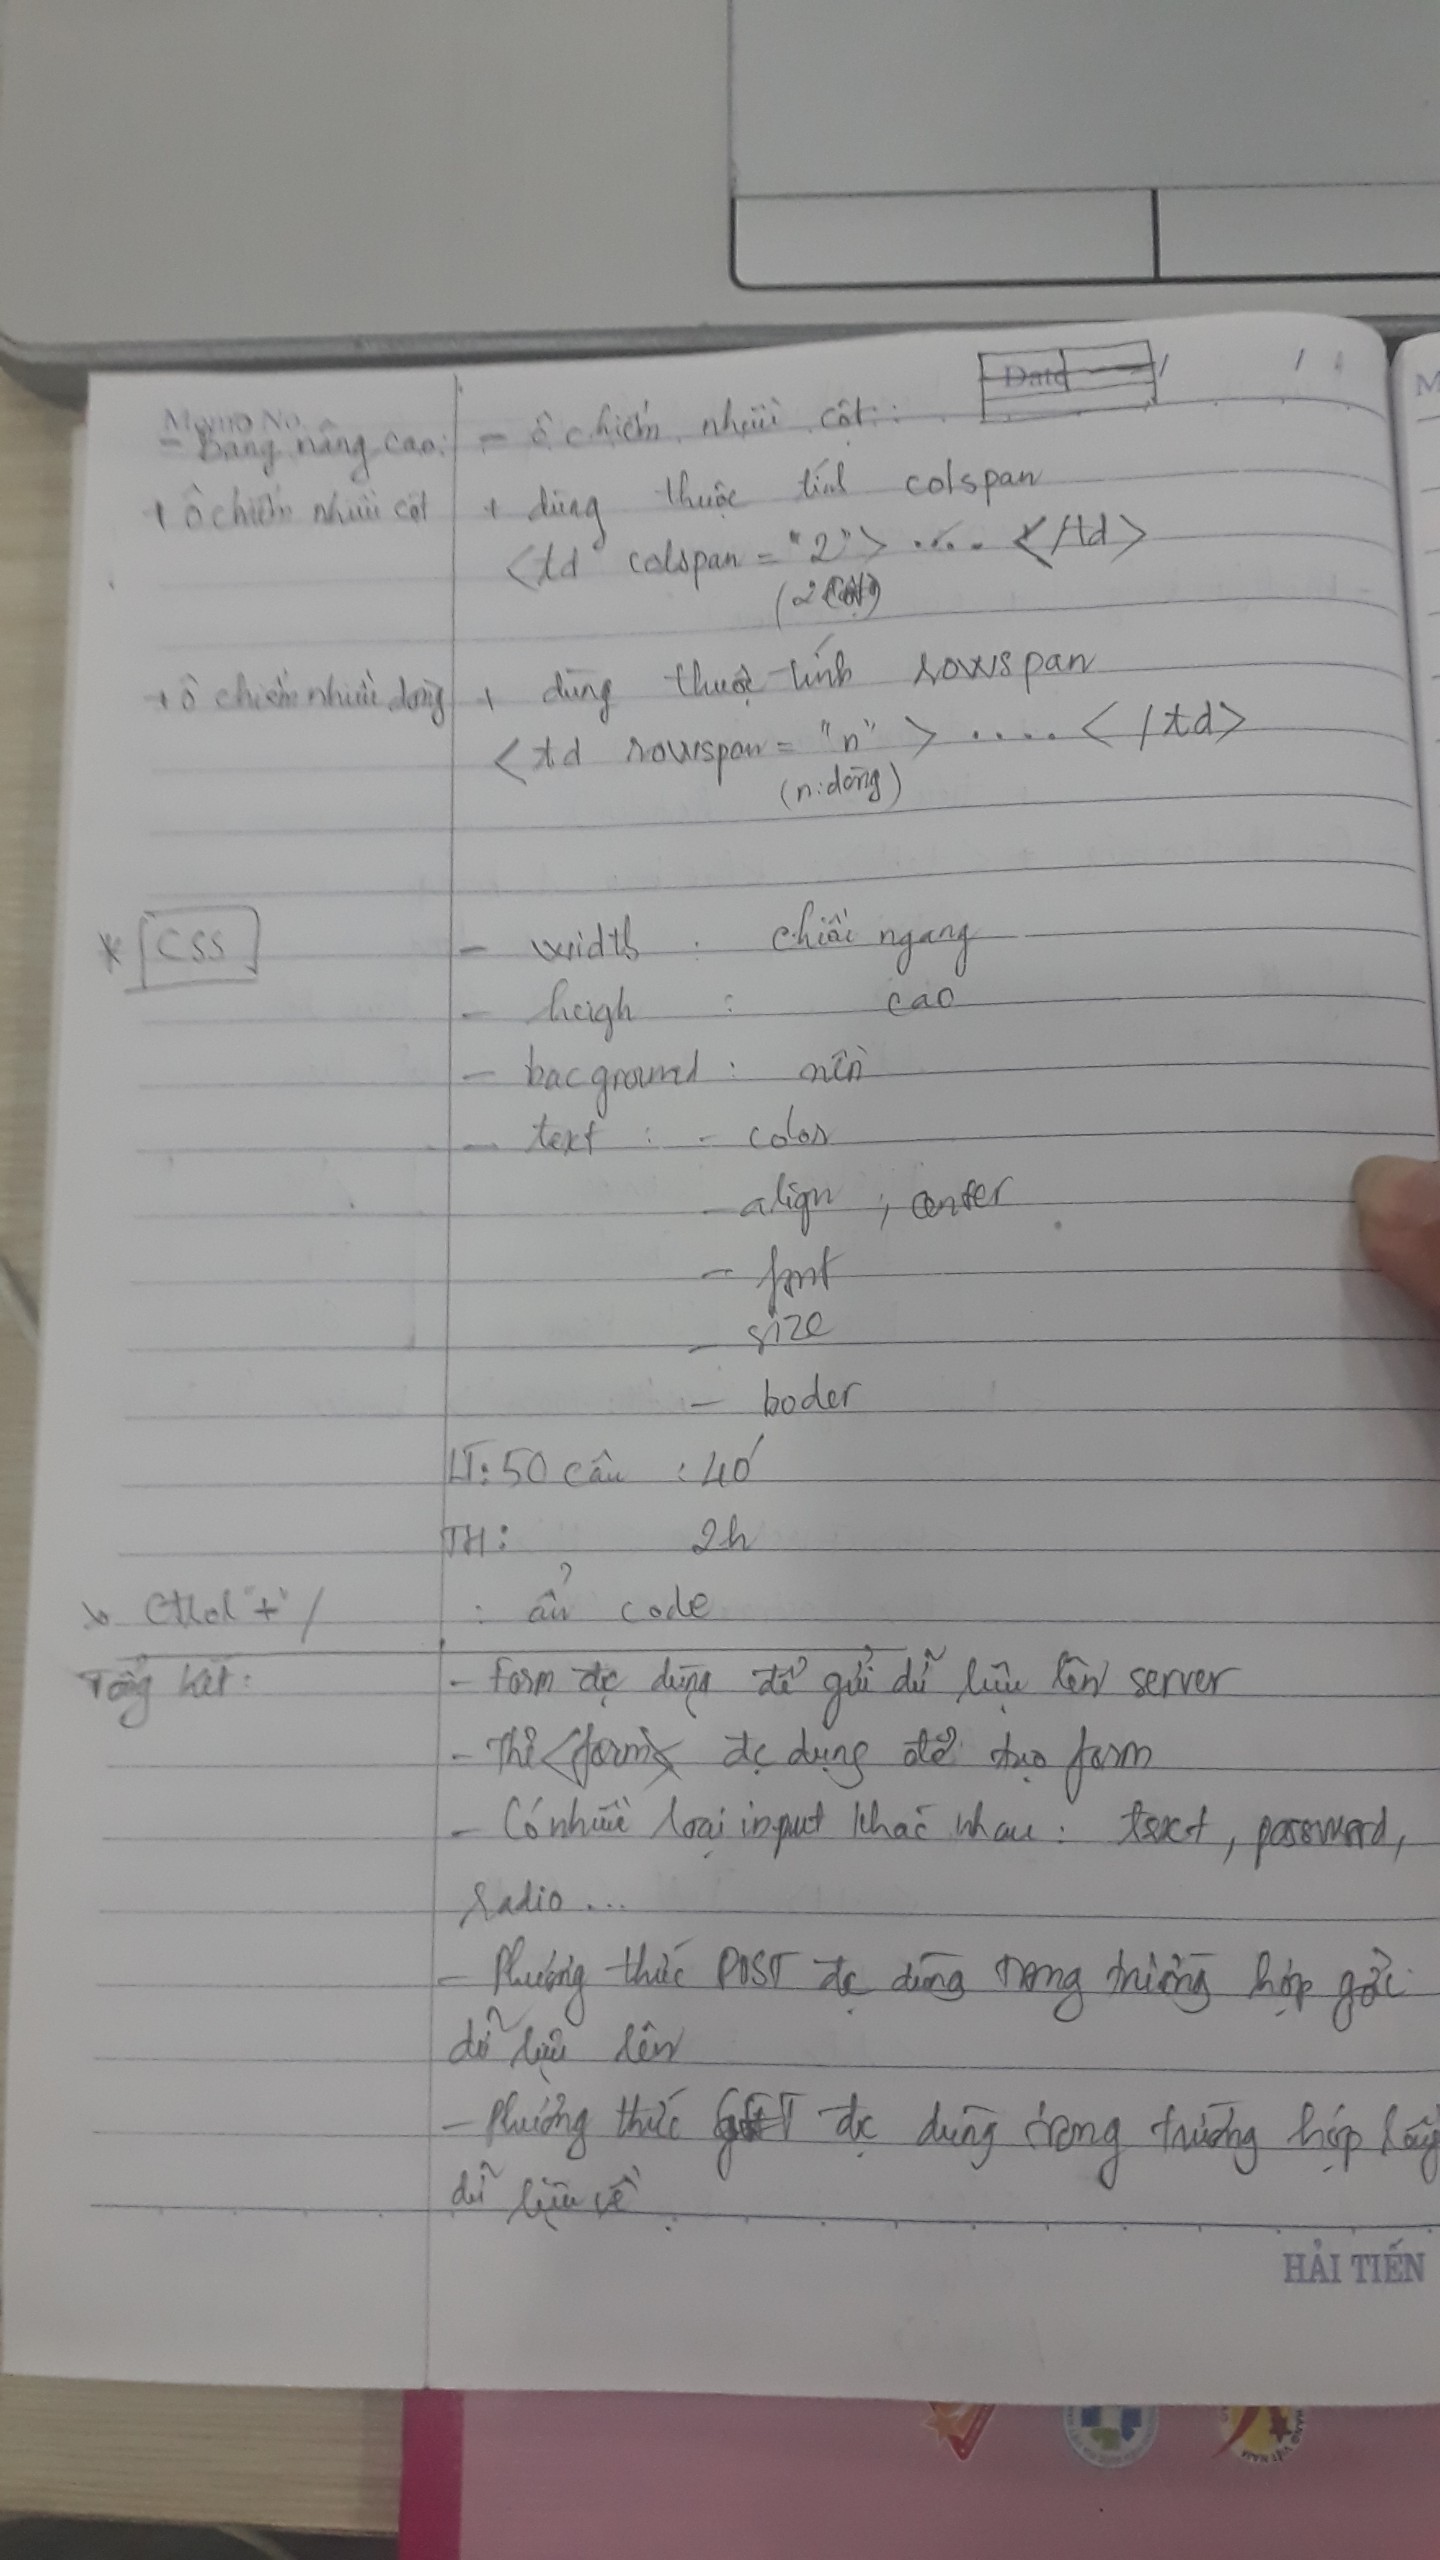 Memo No. Date / /
- Bảng nâng cao: - Ô chiếm nhiều cột:
+ Ô chiếm nhiều cột + dùng thuộc tính colspan
<td colspan = "2"> .... </td>
(2 cột)
+ Ô chiếm nhiều dòng + dùng thuộc tính rowspan
<td rowspan = "n" > ..... </td>
(n: dòng)
* CSS - width : chiều ngang
- heigh : cao
- bacground : nền
- text : - color
- align ; center
- font
- size
- boder
LT: 50 câu : 40'
TH: 2h
"+" / : ẩn code
Tổng kết: - form đc dùng để gửi dữ liệu lên server
- Thẻ <form> đc dụng để tạo form
- Có nhiều loại input khác nhau: text, password,
radio ...
- Phương thức POST đc dùng trong trường hợp gởi
dữ liệu lên
- Phương thức GET đc dùng trong trường hợp lấy
dữ liệu về
HẢI TIẾN